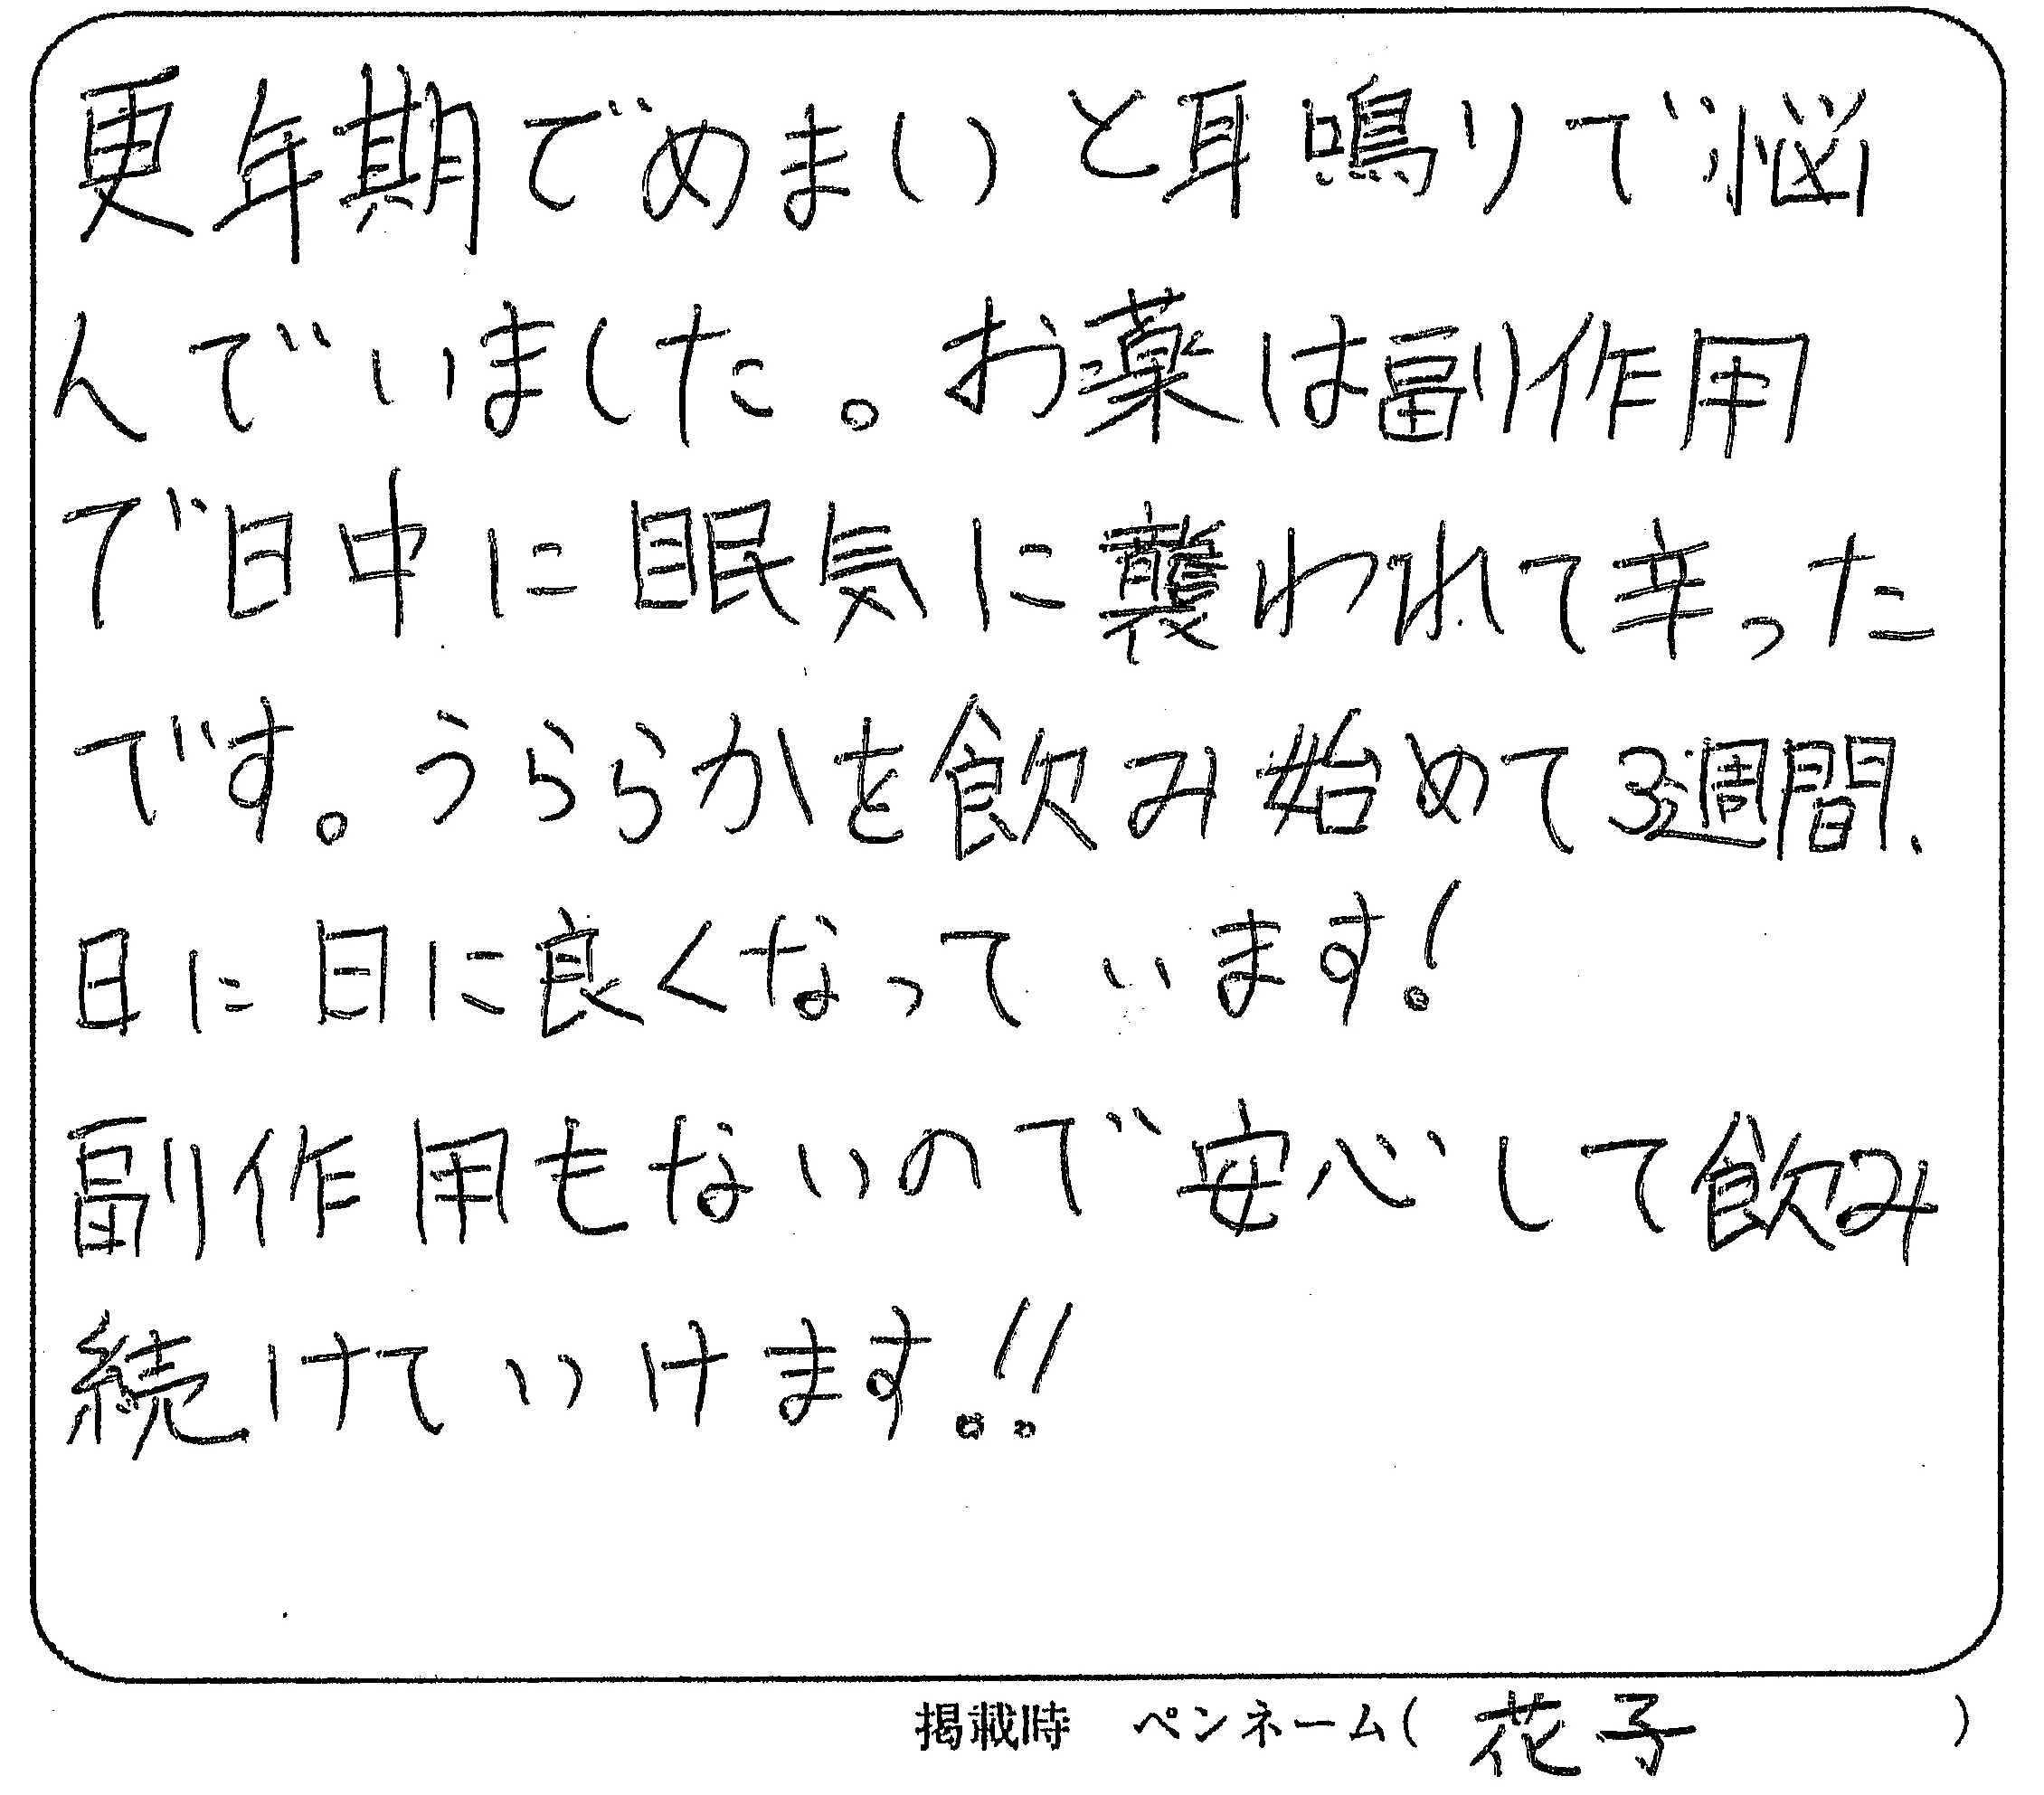 更年期でめまいと耳鳴りで悩
んでいました。お薬は副作用
で日中に眠気に襲われて辛った
です。うららかを飲み始めて3週間、
日に日に良くなっています!
副作用もないので安心して飲み
続けていけます!!
掲載時 ペンネーム( 花子 )